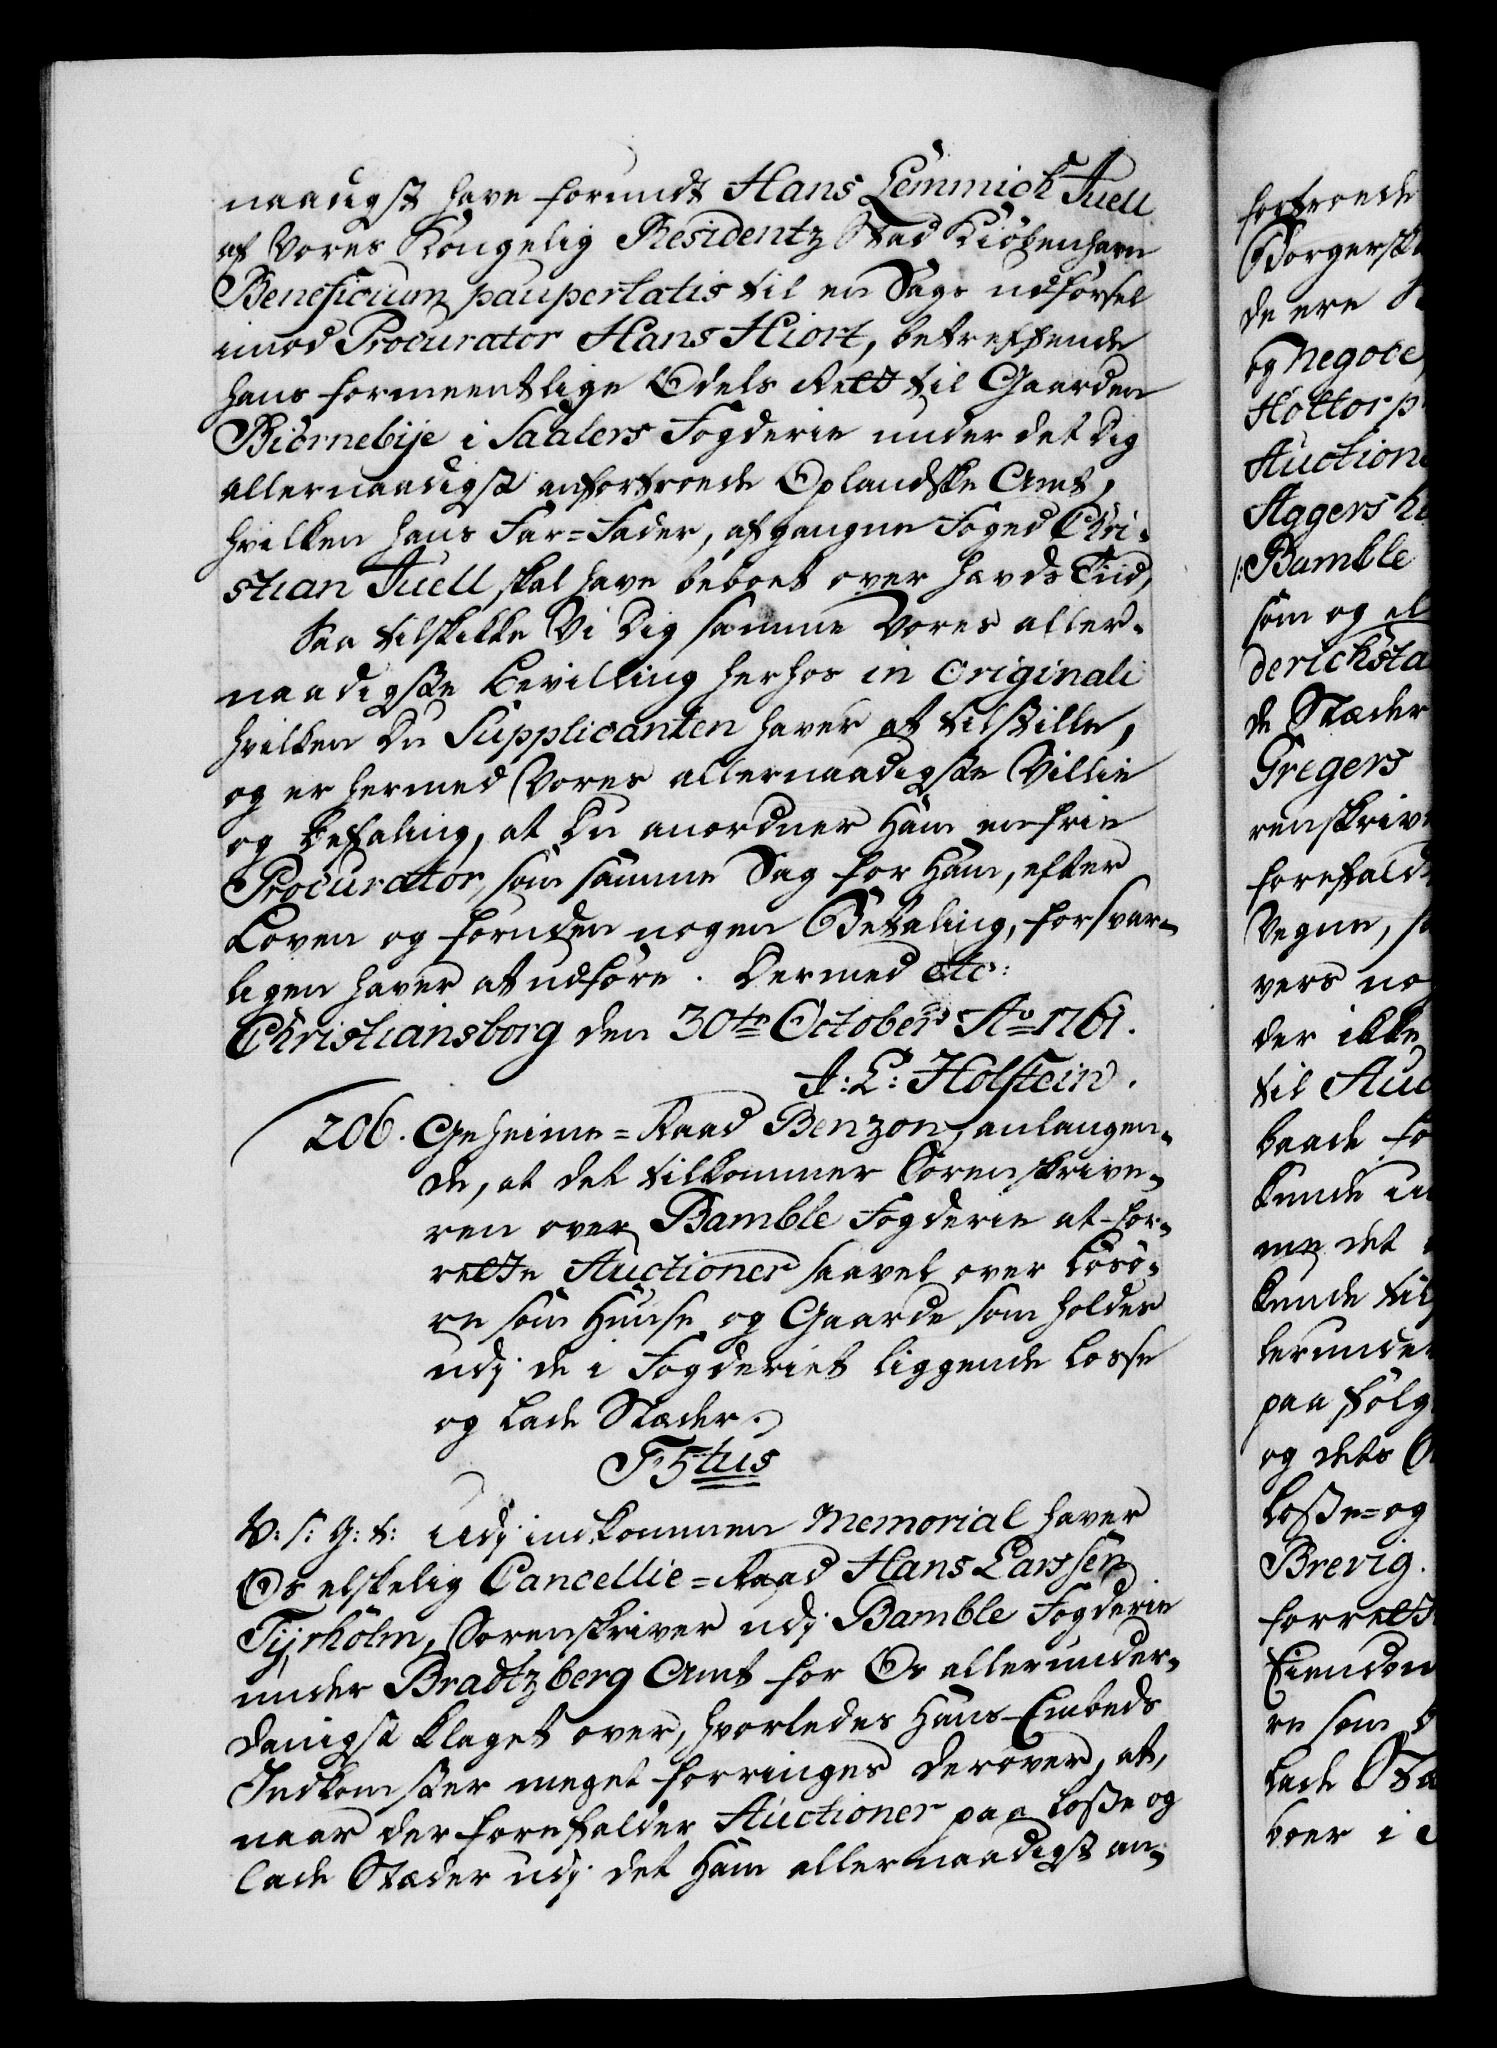 naadigst have forundt Hans Lemmich Juell
af Vores Kongelig Residentz Stad Kiöbenhavn
Beneficium paupertatis til en Sags udförsel
imod Procurator Hans Hiort, betreffende
hans formeentlige Odels Rett til Gaarden
Biörnebije i Saalers Fogderie under det dig
allernaadigst anfortroede Oplandske Amt,
hvilken hans Far-Fader, afgangne Foged Chri-
stian Juell skal have beboet over hævds Tiid,
Saa tilskikke Vi dig samme Vores aller-
naadigste Bevilling herhos in originali
hvilken du Supplicanten haver at tilstille,
og er hermed Vores allernaadigste Villie
og befaling, at du anordner Ham en frie
Procurator, som samme Sag for Ham, efter
Loven og foruden nogen Betaling, forsvar-
ligen haver at udföre. Dermed etc:
Christiansborg den 30te October Ao 1761.
J: L: Holstein.
206. Geheime-Raad Benzon, anlangen-
de, at det tilkommer Sorenskrive-
ren over Bamble Fogderie at for-
rette Auctioner saavel over Lösö-
re som Huuse og Gaarde som holdes
udj de i Fogderiet liggende Losse
og Lade Stæder.
F5tus
V: S: G: t: Udj indkommen Memorial haver
Os elskelig Cancellie-Raad Hans Larssen
Tijrholm, Sorenskriver udj Bamble Fogderie
under Bradtzberg Amt for Os allerunder-
danigst klaget over, hvorledes Hans Embeds
Indkomster meget forringes derover, at,
naar der forefalder Auctioner paa Losse og
Lade Stæder udj det Ham allernaadigst an-
fortroede
Borgersk
de ere
og Negoce
Holtorp
Auction
Aggersh
/: Bamble
som og el
derichsta
de Stæder
Gregers
renskriv
forefald
Vegne, s
vers no
der ikke
til Auc
baade fo
kunde
det
kunde til
derunder
paa fölg
og dets
Losse- og
Brevig.
forrett
Eiendom
re som
Lade Sta
boer i